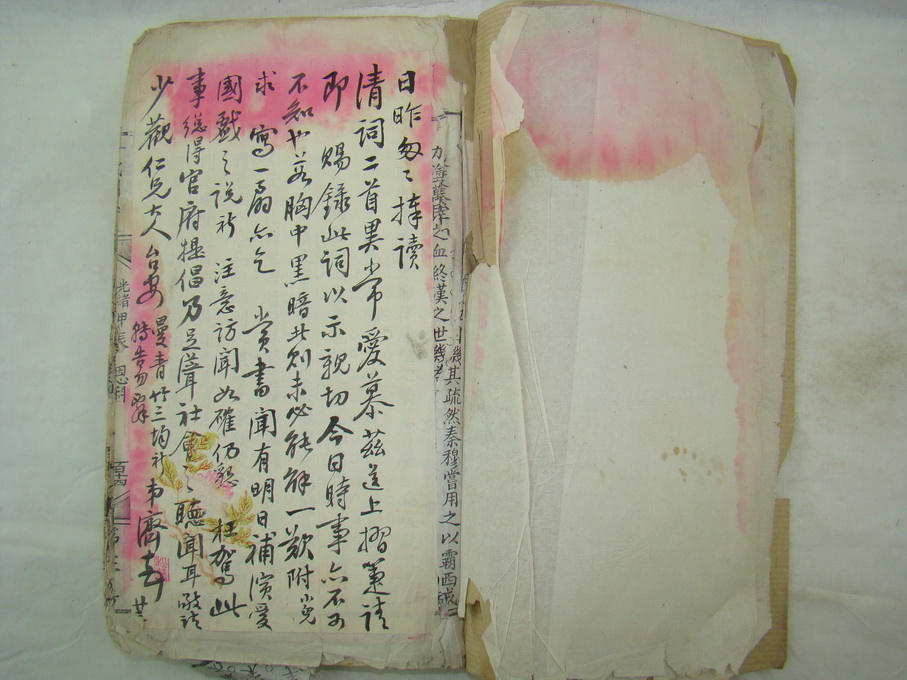 日昨匆〻捧讀
清詞二首異常愛慕茲送上摺箑請
即賜錄此詞以示親切今日時事亦不可
不知也若胸中黑暗此則未必能解一歎附小兒
求寫一扇亦乞賞書聞有明日補演愛
國戲之說祈注意訪聞如確仍懇枉駕此
事總得官府提倡乃足聳社會之聽聞耳敬請
少觀仁兄大人台安
弟濟 廿
之血終漢之世幾
幾其疏然秦穆嘗用之以霸西戎
光緒甲辰恩科